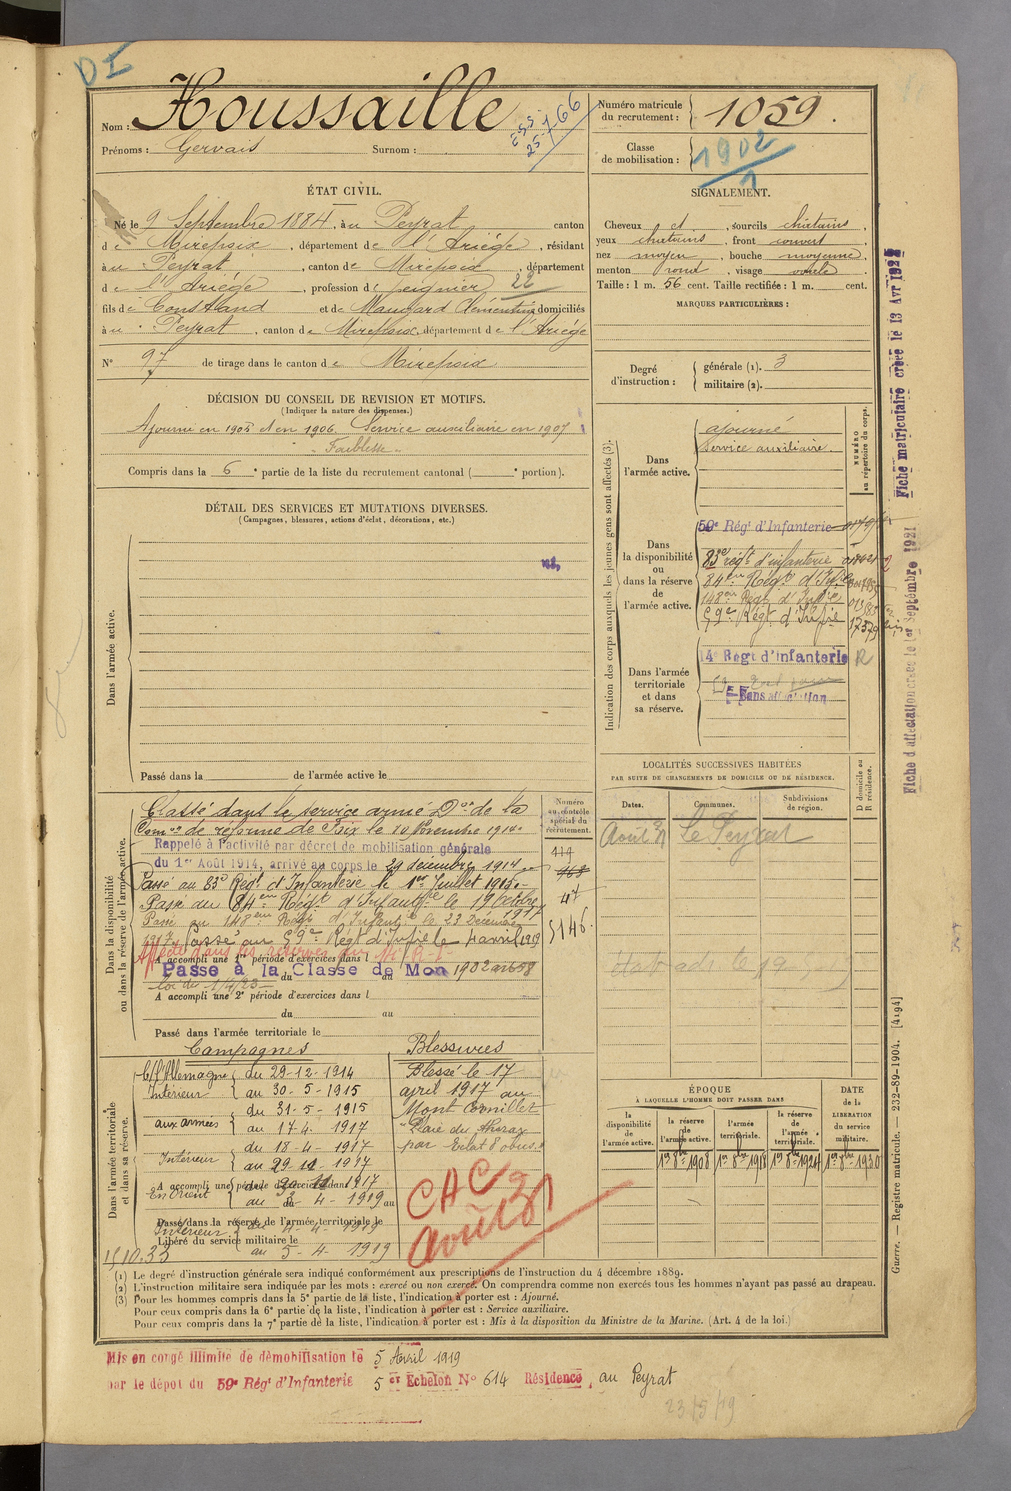 DI
Nom : Houssaille
Prénoms : Gervais Surnom :
25-7-66
Numéro matricule du recrutement : 1059.
Classe de mobilisation : 1902
ÉTAT CIVIL.
Né le 9 Septembre 1884, à Peyrat canton
de Mirepoix, département de l'Ariège, résidant
à Peyrat, canton de Mirepoix, département
de l'Ariège, profession de peignier 22
fils de Constand et de Maugard Clémentine domiciliés
à Peyrat, canton de Mirepoix, département de l'Ariège
N° 97 de tirage dans le canton de Mirepoix
SIGNALEMENT.
Cheveux et, sourcils chatains,
yeux chatains, front couvert,
nez moyen, bouche moyenne,
menton rond, visage ovale.
Taille : 1 m. 56 cent. Taille rectifiée : 1 m. cent.
MARQUES PARTICULIÈRES :
Degré d'instruction : générale (1). 3
militaire (2).
DÉCISION DU CONSEIL DE REVISION ET MOTIFS.
(Indiquer la nature des dispenses.)
Ajourné en 1905 et en 1906. Service auxiliaire en 1907
Faiblesse
Compris dans la 6e partie de la liste du recrutement cantonal ( e portion).
DÉTAIL DES SERVICES ET MUTATIONS DIVERSES.
(Campagnes, blessures, actions d'éclat, décorations, etc.)
Dans l'armée active.
Passé dans la de l'armée active le
Indication des corps auxquels les jeunes gens sont affectés (3).
NUMÉRO au répertoire du corps.
Dans l'armée active.
ajourné
Service auxiliaire.
Dans la disponibilité ou dans la réserve de l'armée active.
59e Régt d'Infanterie
83e régt d'infanterie
84ème Régt d'Infie
148ème Régt d'Infie
59e Régt d'Infie
Dans l'armée territoriale et dans sa réserve.
14e Régt d'Infanterie R
Sans affectation
LOCALITÉS SUCCESSIVES HABITÉES
PAR SUITE DE CHANGEMENTS DE DOMICILE OU DE RÉSIDENCE.
Dates. Communes. Subdivisions de région. D domicile ou R résidence.
Le Peyrat
Dans la disponibilité ou dans la réserve de l'armée active.
Numéro au contrôle spécial du recrutement.
Classé dans le service armé Don de la
Comon de réforme de Foix le 10 Novembre 1914.
Rappelé à l'activité par décret de mobilisation générale
du 1er Août 1914, arrivé au corps le 29 décembre 1914
Passé au 83e Régt d'Infanterie le 1er Juillet 1915.
Passé au 84ème Régt d'Infantie le 19 Octobre 1917
Passé au 148ème Régt d'Infantie le 23 Décembre
1917. Passé au 59e Régt d'Infie le 4 avril 1919
5146
A accompli une 1re période d'exercices dans l
Passé à la Classe de Mon 1902 art 58
loi du 1/4/23
du au
A accompli une 2e période d'exercices dans l
du au
Passé dans l'armée territoriale le
Dans l'armée territoriale et dans sa réserve.
Campagnes
C/ l'Allemagne
Intérieur du 29-12-1914
au 30-5-1915
aux armées du 31-5-1915
au 17-4-1917
Intérieur du 18-4-1917
au 29 11-1917
En Orient
au 3-4-1919
Intérieur du 4-4-1919
au 5-4-1919
A accompli une période d'exercices dans l
du au
Passé dans la réserve de l'armée territoriale le
Libéré du service militaire le
15.10.33
Blessures
Blessé le 17
avril 1917 au
Mont Cornillet
"Plaie du thorax
par Éclat d'obus."
CAC
août 31
ÉPOQUE
À LAQUELLE L'HOMME DOIT PASSER DANS
la disponibilité de l'armée active.
la réserve de l'armée active. 1er 8bre 1908
l'armée territoriale. 1er 8bre 1918
la réserve de l'armée territoriale. 1er 8bre 1924
DATE de la LIBÉRATION du service militaire. 1er 8bre 1930
(1) Le degré d'instruction générale sera indiqué conformément aux prescriptions de l'instruction du 4 décembre 1889.
(2) L'instruction militaire sera indiquée par les mots : exercé ou non exercé. On comprendra comme non exercés tous les hommes n'ayant pas passé au drapeau.
(3) Pour les hommes compris dans la 5e partie de la liste, l'indication à porter est : Ajourné.
Pour ceux compris dans la 6e partie de la liste, l'indication à porter est : Service auxiliaire.
Pour ceux compris dans la 7e partie de la liste, l'indication à porter est : Mis à la disposition du Ministre de la Marine. (Art. 4 de la loi.)
Mis en congé illimité de démobilisation le 5 Avril 1919
par le dépôt du 59e Régt d'Infanterie 5e Echelon N° 614 Résidence, au Peyrat
23/5/19
Fiche matriculaire créée le 13 Avr 1928
Fiche d'affectation créée le 1er Septembre 1921
Guerre. — Registre matricule. — 232-89-1904. [4194]